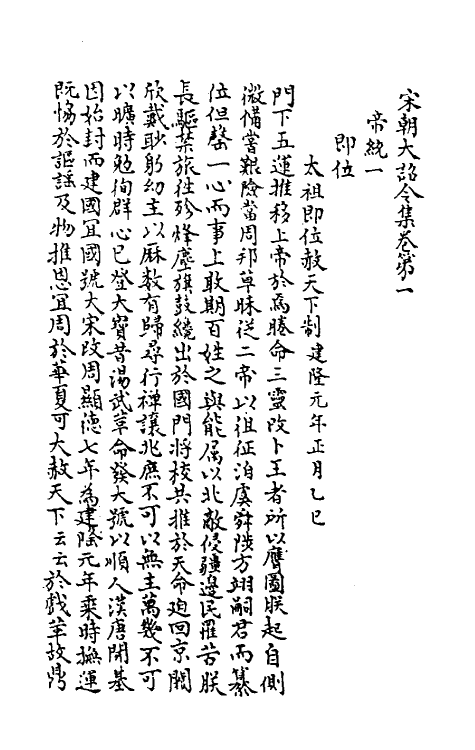 宋朝大詔令集卷第一
帝統一
即位
太祖即位赦天下制建隆元年正月乙巳
門下五運推移上帝於焉睠命三靈改卜王者所以膺圖朕起自側
微備嘗艱險當周邦草昧從二帝以徂征洎虞舜陟方翊嗣君而纂
位但罄一心而事上敢期百姓之與能属以北敵侵疆邊民罹苦朕
長驅禁旅往殄烽塵旗鼓纔出於國門將校共推於天命迫回京闕
欣戴眇躬幼主以厤數有歸尋行禅讓兆庶不可以無主萬幾不可
以曠時勉徇群心已登大寶昔湯武革命發大號以順人漢唐開基
因始封而建國冝國號大宋改周顯德七年為建隆元年乘時撫運
既恊於謳謡及物推恩冝周於華夏可大赦天下云云於戲革故鼎